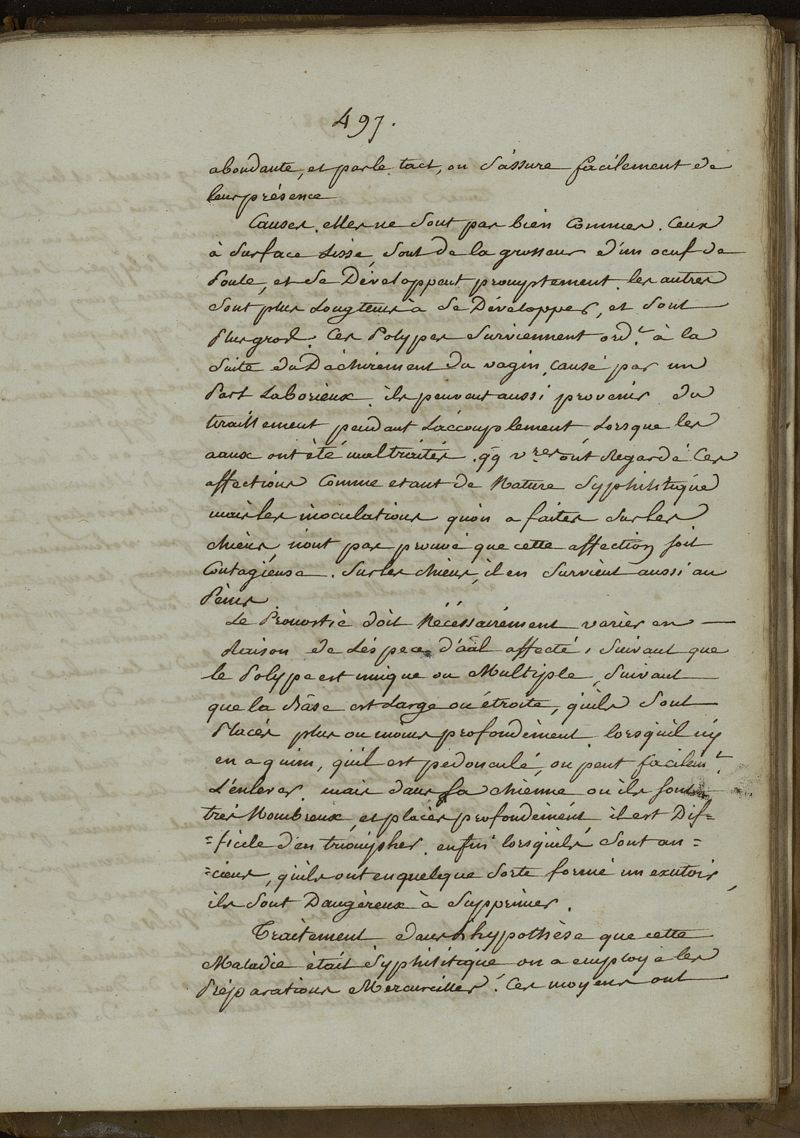 497.
abondante, et par le tact, on s'assure facilement de
leur présence
Causes. elles ne sont pas bien connues. Ceux
à surface Lisse, sont de la grosseur d'un oeuf de
Poule, et se Développent promptement. les autres
sont plus Longtems à se Développer, et sont
Plus gros. Ces Polypes surviennent ord.t à la
suite du Déchirement du vagin, causé par un
Part Laborieux. ils peuvent aussi provenir du
tiraillement pendant L'accouplement Lorsque les
aaux ont été maltraités. qq vres ont Regardé Ces
affections Comme etant de Nature Syphilitique
mais les inoculations qu'on a faites sur les
chiens n'ont pas prouvé que cette affection soit
Contagieuse. sur les chiens, il en survient aussi au
Pénis.
Le Pronostic doit Nécessairement varier en
Raison de L'éspece d'aal affecté, suivant que
le Polype est unique ou Multiple, suivant
que la Bâse est Large ou étroite, qu'ils sont
Placés plus ou moins profondément. lorsqu'il n'y
en a qu'un, qu'il est pédonculé, on peut facilem.t
L'enlever. mais dans la chienne ou ils sont
très Nombreux, et placés profondement, il est Dif=
=ficile d'en triompher. enfin lorsqu'ils sont an=
=ciens, qu'ils ont en quelque sorte formé un exutoir,
ils sont Dangéreux à Supprimer.
Traitement dans L'hypothèse que cette
Maladie était Syphilitique on a employé les
Préparations Mercurielles. Ces moyens ont